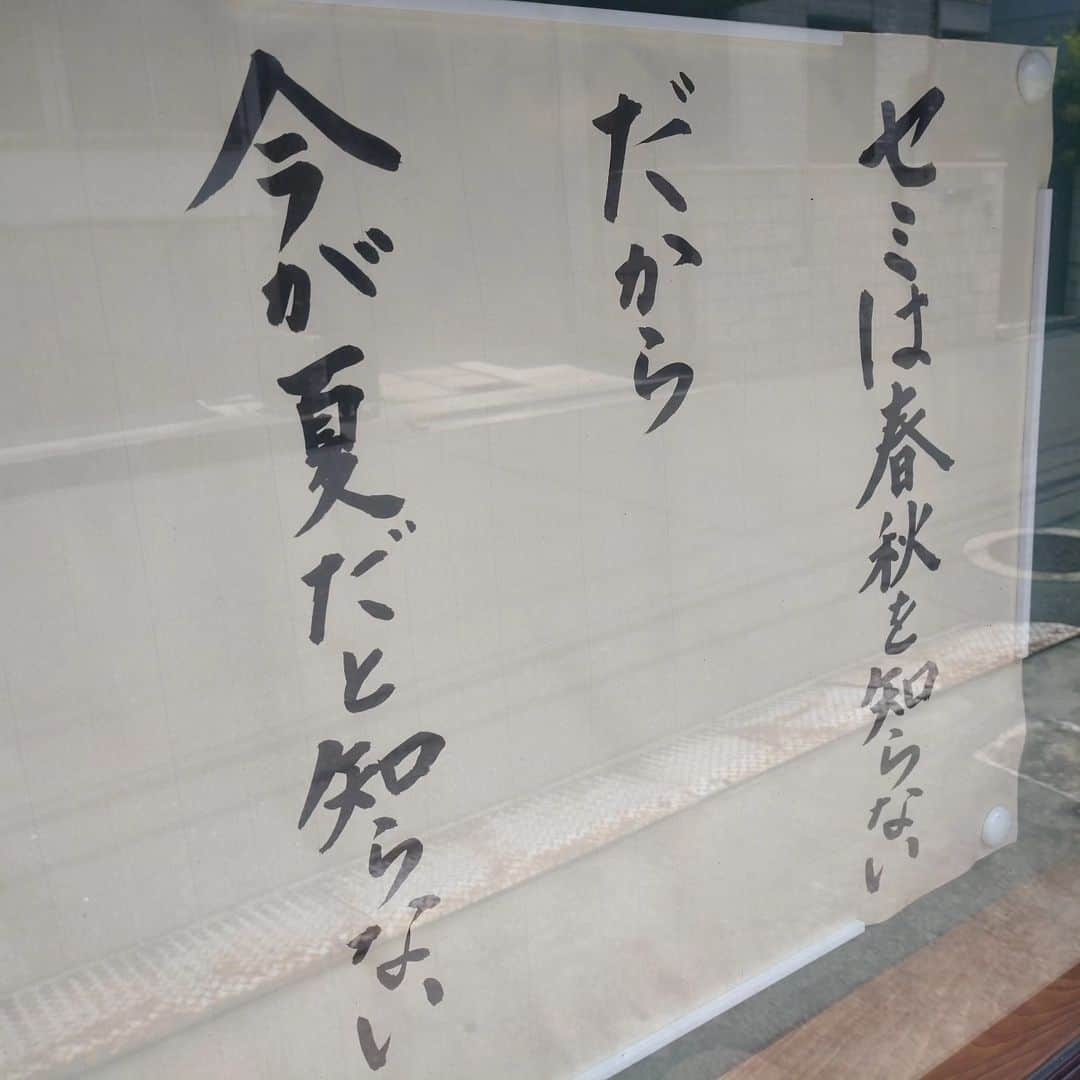 セミは春秋を知らない
だから
今が夏だと知らない